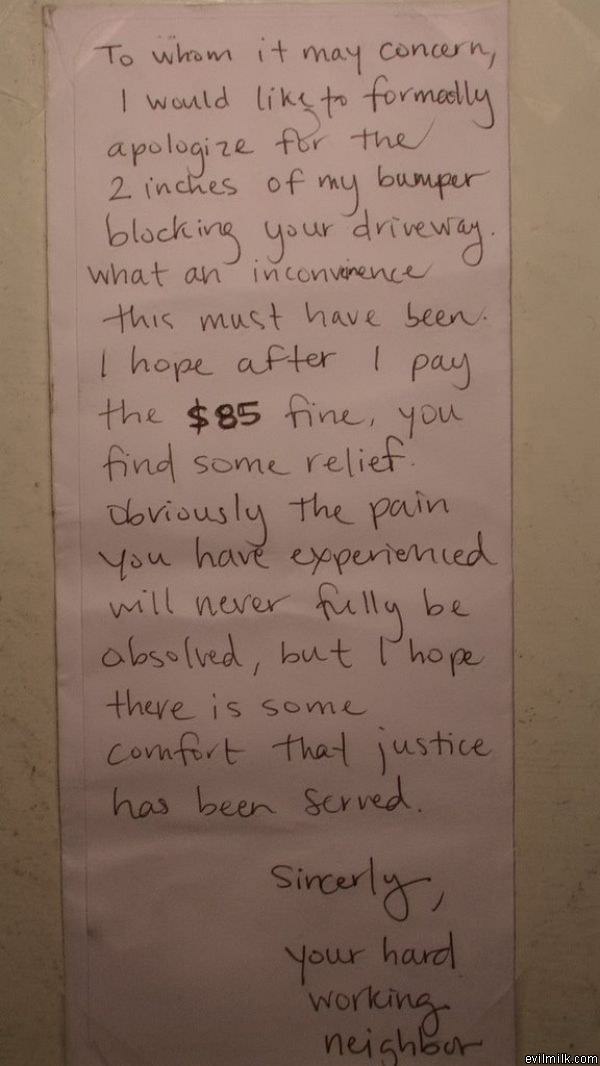 To whom it may concern,
I would like to formally
apologize for the
2 inches of my bumper
blocking your driveway.
what an inconvinence
this must have been.
I hope after I pay
the $85 fine, you
find some relief.
Obviously the pain
you have experienced
will never fully be
absolved, but I hope
there is some
comfort that justice
has been served.
Sincerly,
your hard
working
neighbor
evilmilk.com